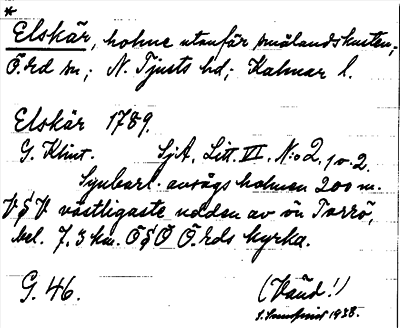 *
Elskär, holme utanför smålandskusten;
Ö.rd sn; N. Tjusts hd; Kalmar l.
Elskär 1789.
G. Klint. SjA, Litt. VI, N:o 2, 1 o. 2.
Synbarl. avsågs holmen 200 m.
VSV västligaste udden av ön Torrö,
bel. 7,3 km. ÖSÖ Ö.rds kyrka.
G. 46. (Vänd!)
1938.